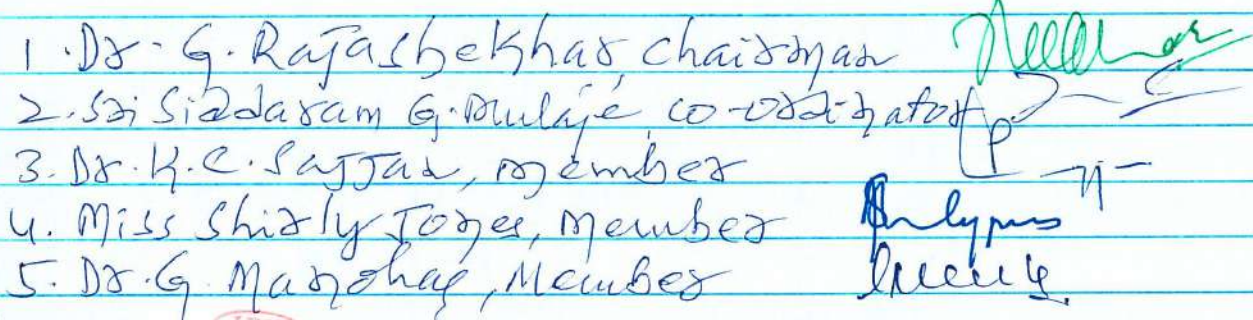 1. Dr. G. Rajashekhar chairman
2. Sri Siddaram G. Mulaje co-ordinator
3. Dr. K.C. Sajjan, member
4. Miss Shirly Jones, Member
5. Dr. G. Manohar, Member